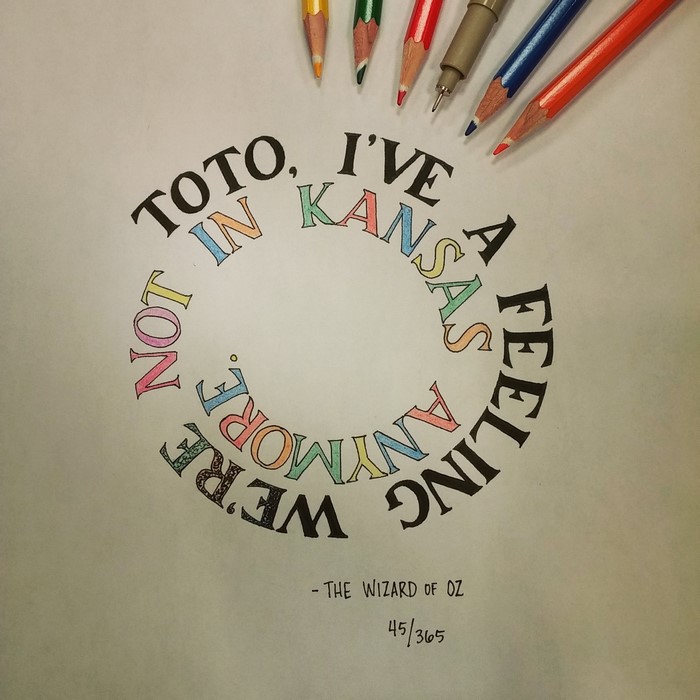 TOTO, I'VE A FEELING WE'RE NOT IN KANSAS ANYMORE.
- THE WIZARD OF OZ
45/365